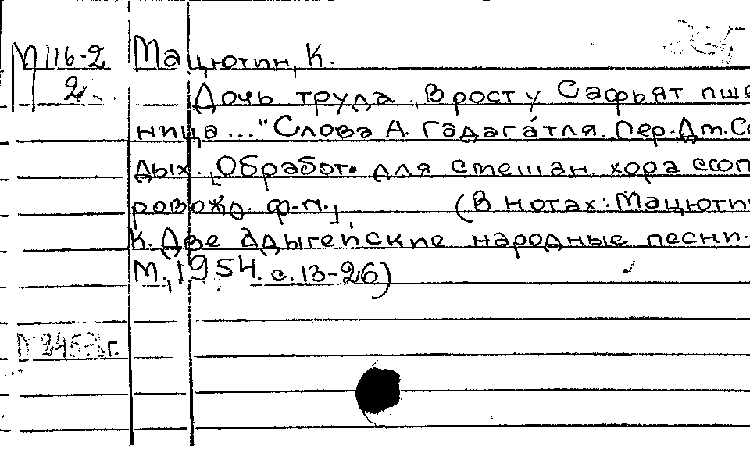 М 116-2
2
Мацютин, К.
Дочь труда. „В росту Сафьят пше
ница..." Слова А. Гадага́тля. Пер. Дм. Се
дых. Обработ. для смешан. хора с соп
ровожд. ф-п.,          (В нотах: Мацютин
К. Две адыгейские народные песни.
М., 1954. с. 13-26)